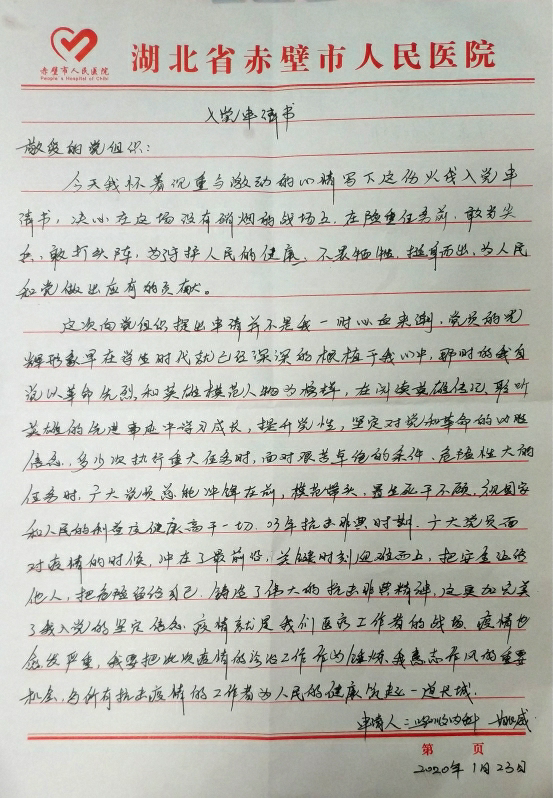 赤壁市人民医院
People's Hospital of Chibi
湖北省赤壁市人民医院
入党申请书
敬爱的党组织：
今天我怀着沉重与激动的心情写下这份火线入党申
请书，决心在这场没有硝烟的战场上，在险重任务前，敢当尖
兵、敢打头阵，为守护人民的健康，不畏牺牲，挺身而出，为人民
和党做出应有的贡献。
这次向党组织提出申请并不是我一时心血来潮，党员的光
辉形象早在学生时代就已经深深的根植于我心中，那时的我自
说以革命先烈和英雄模范人物为榜样，在阅读英雄传记、聆听
英雄的先进事迹中学习成长，提升党性，坚定对党和革命的必胜
信念。多少次执行重大任务时，面对艰苦卓绝的条件、危险性大的
任务时，广大党员总能冲锋在前，模范带头，置生死于不顾，视国家
和人民的利益及健康高于一切。03年抗击非典时期，广大党员面
对疫情的时候，冲在了最前沿，关键时刻迎难而上，把安全让给
他人，把危险留给自己，铸造了伟大的抗击非典精神，这更加完美
了我入党的坚定信念。疫情就是我们医疗工作者的战场，疫情也
愈发严重，我要把此次疫情的诊治工作作为锤炼我意志作风的重要
机会，与所有抗击疫情的工作者为人民的健康筑起一道长城。
申请人：呼吸内科
第 页
2020年1月23日